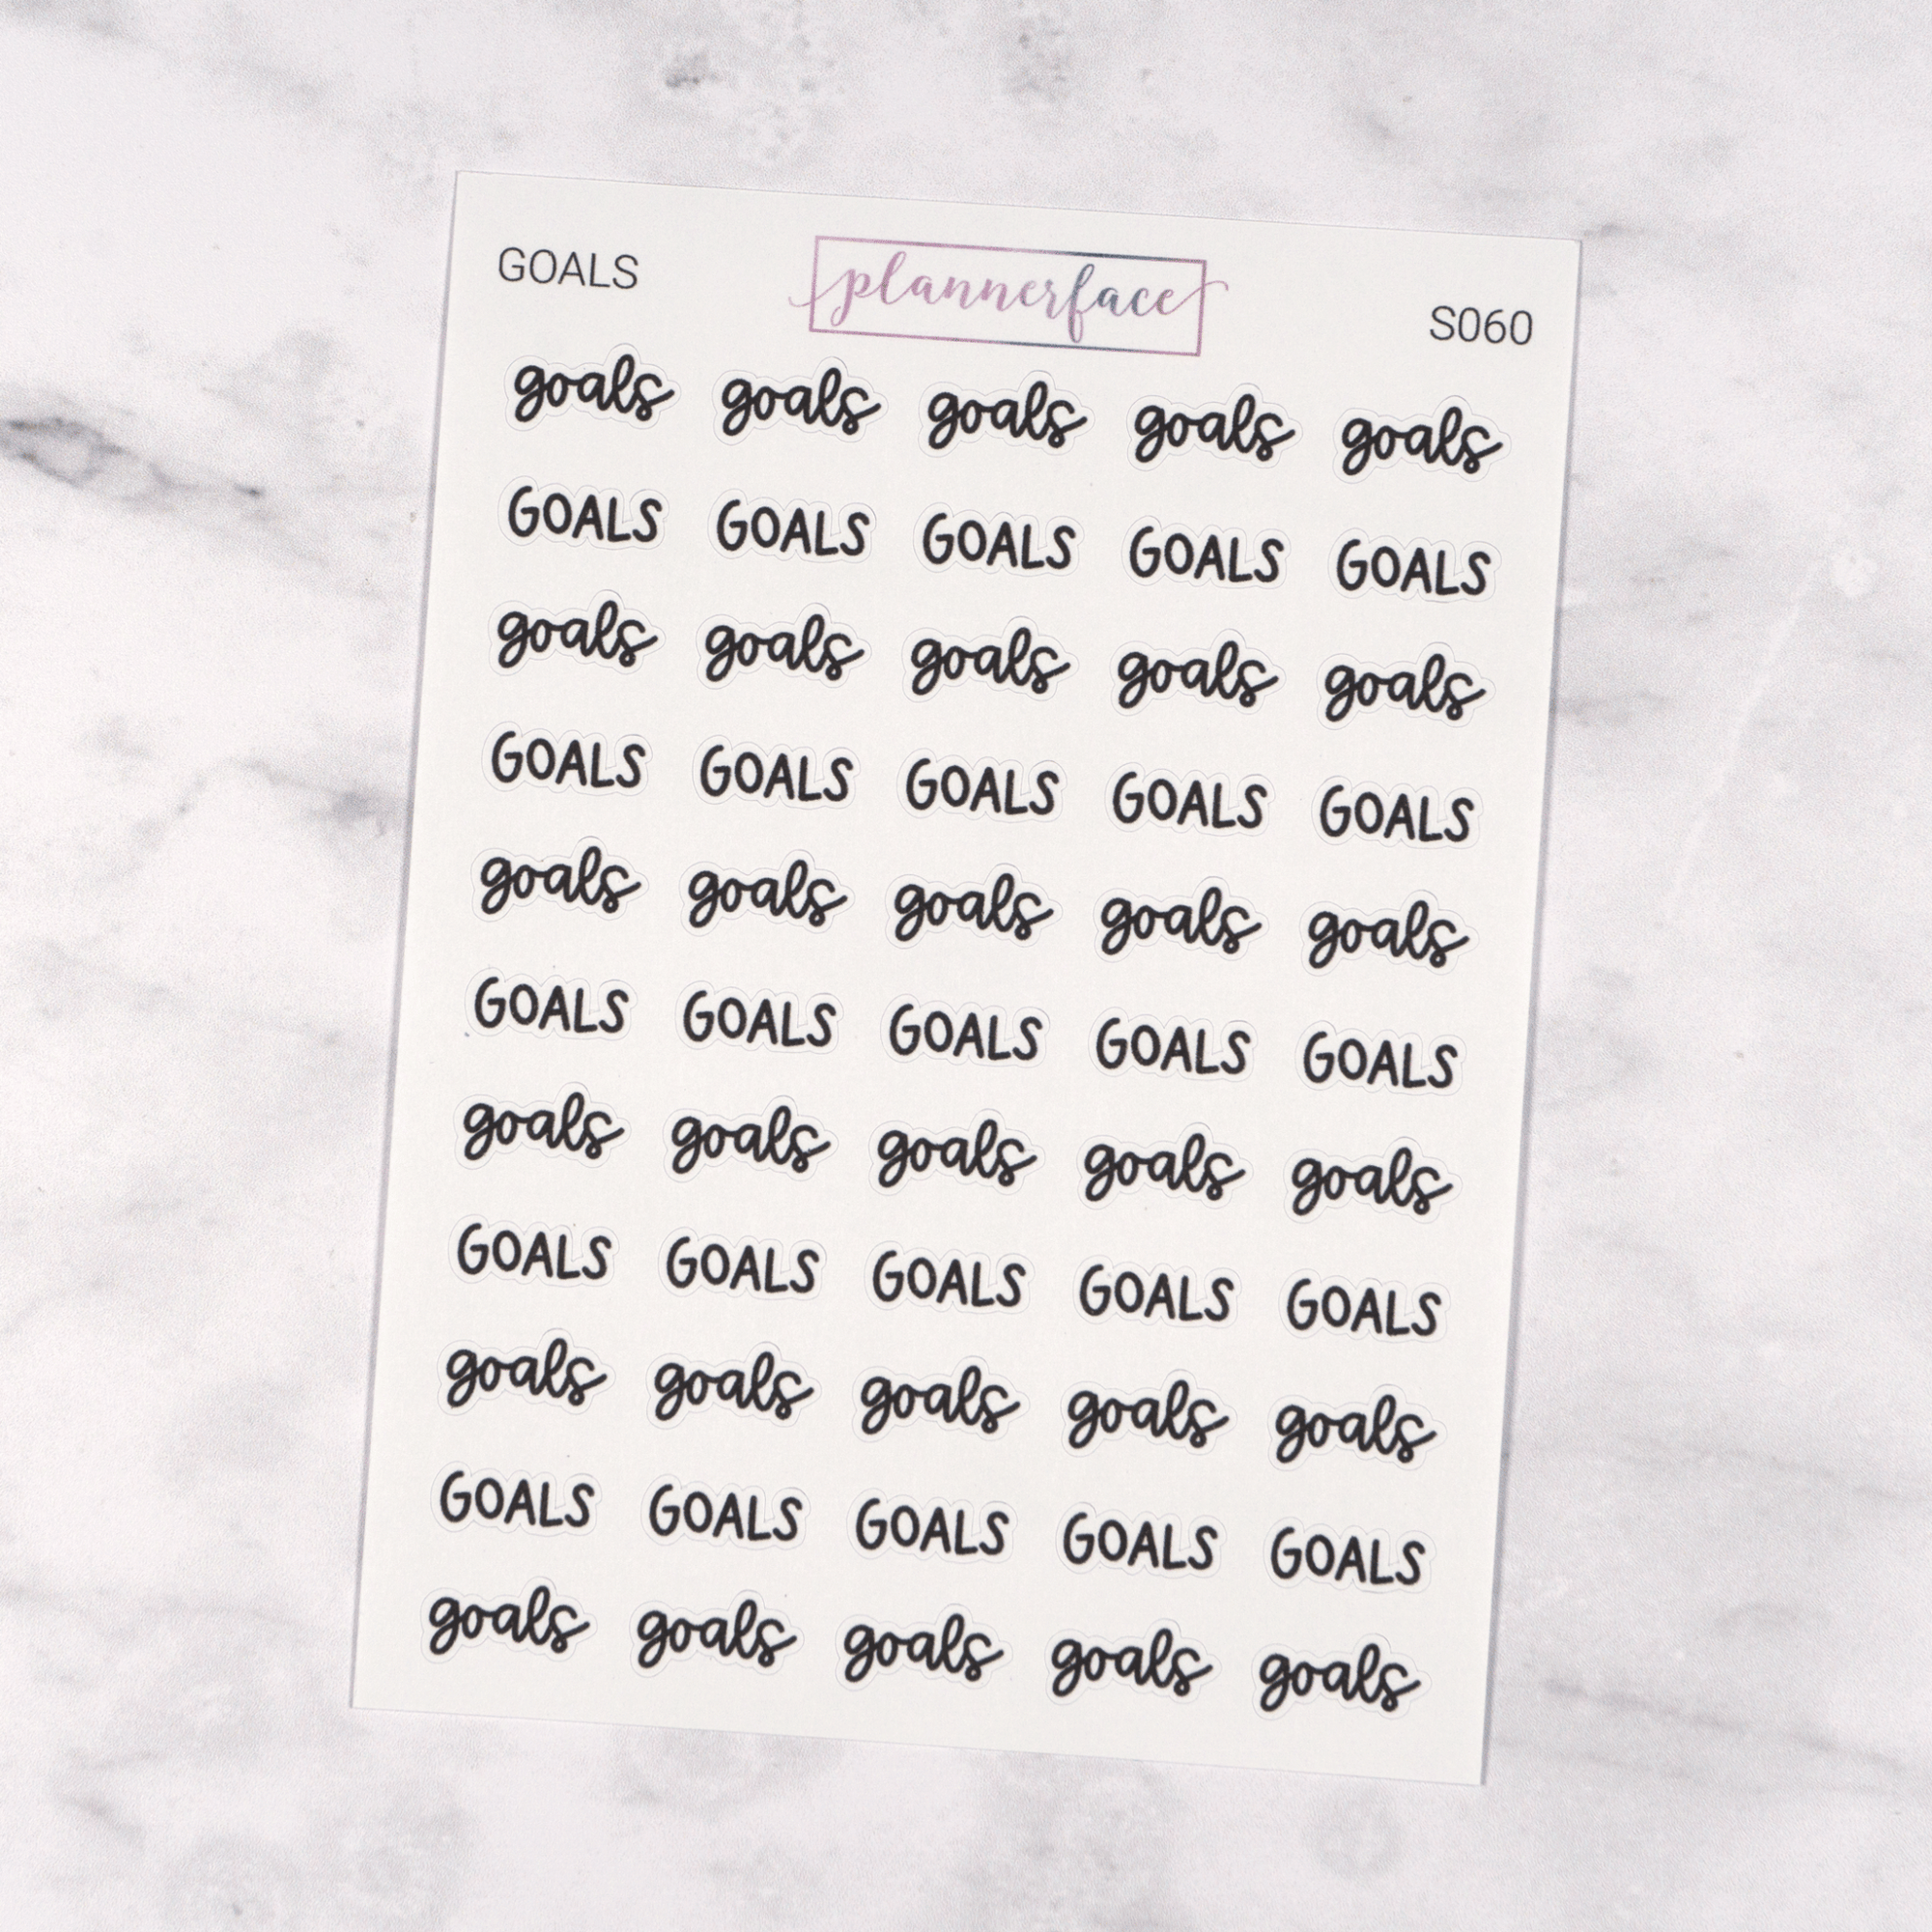 GOALS plannerface S060
goals goals goals goals goals
GOALS GOALS GOALS GOALS GOALS
goals goals goals goals goals
GOALS GOALS GOALS GOALS GOALS
goals goals goals goals goals
GOALS GOALS GOALS GOALS GOALS
goals goals goals goals goals
GOALS GOALS GOALS GOALS GOALS
goals goals goals goals goals
GOALS GOALS GOALS GOALS GOALS
goals goals goals goals goals